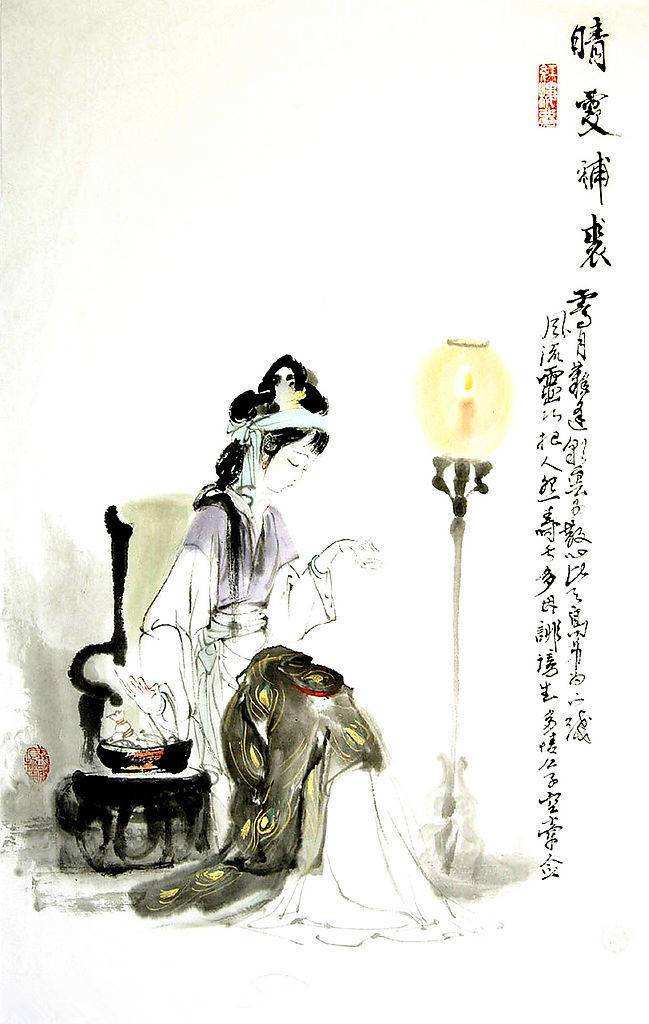 晴雯補裘
霽月難逢彩雲易散心比天高身為下賤
風流靈巧招人怨壽夭多因誹謗生多情公子空牽念